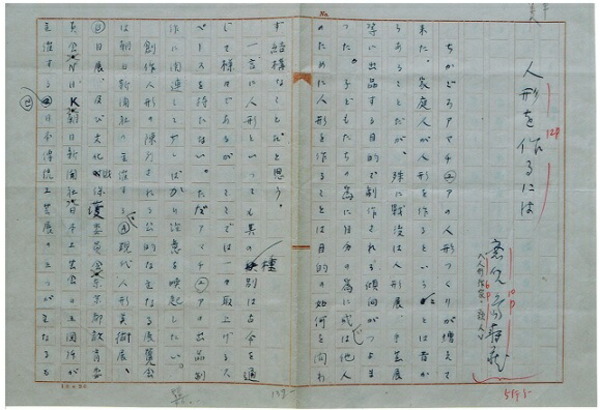 人形を作るには
ちかごろアマチュアの人形つくりが増えて
来た。家庭人が人形を作るということは昔か
らあることだが、殊に戦後は人形展、手芸展
等に出品する目的で制作される傾向がつよま
った。子どもたちの為に自分の為に或は他人
のために人形を作ることは目的の如何を問わ
ず結構なことだと思う。
一言に人形といっても其の種別は古今を通
じて様々であるが、ここでは一々取上げるス
ペースを持たない。ただアマチュアの出品制
作に関連して少しばかり注意を喚起したい。
創作人形の陳列される公的な主なる展覧会
は朝日新聞社の主催する現代人形美術展、
日展、及び文化財保護委員会 東京都教育委
員会 NHK 朝日新聞社 日本工芸会の五箇所が
主催する日本伝統工芸展の三つが主なるも